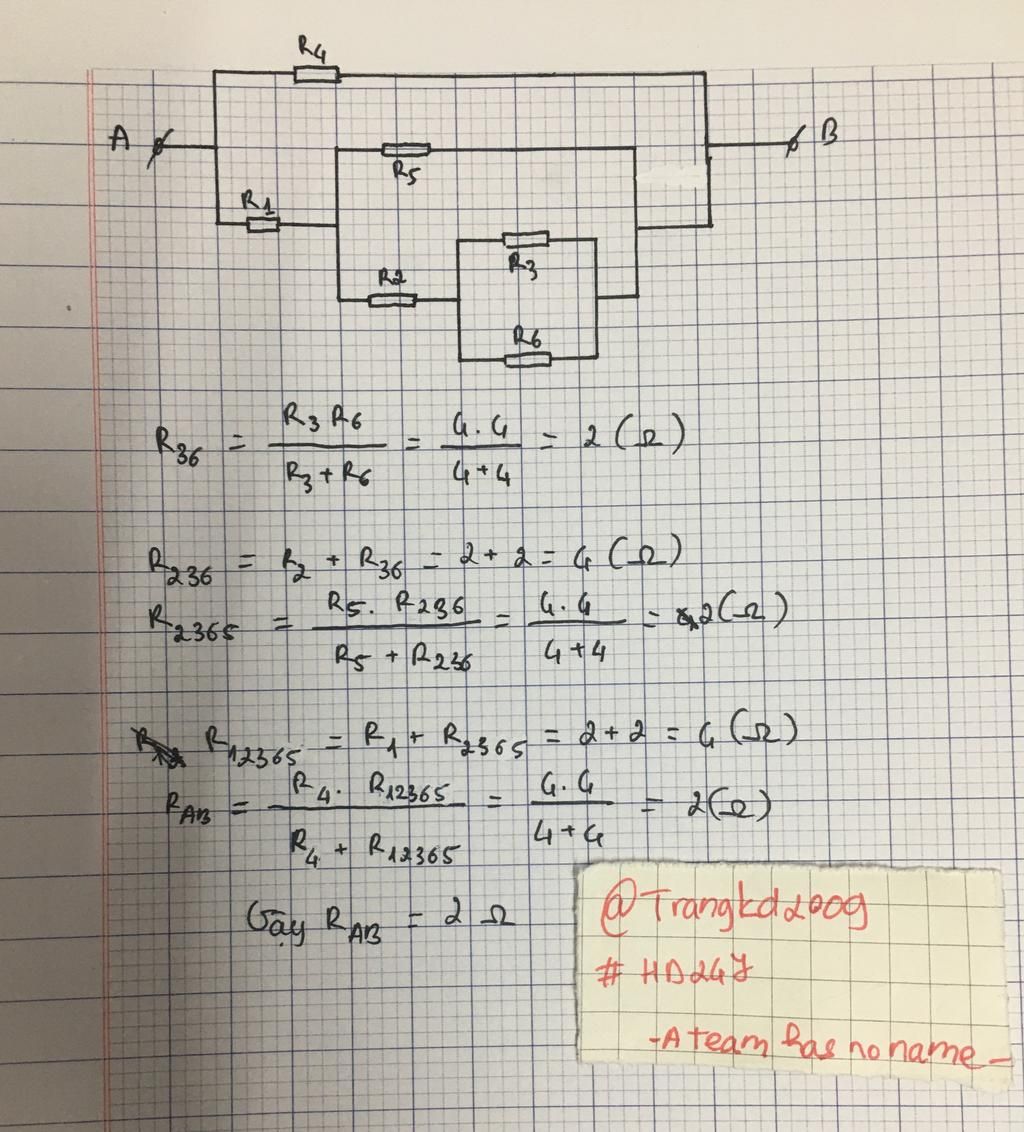 R4
A
B
R5
R1
R3
R2
R6
R36 = R3 R6 / R3 + R6 = 4.4 / 4+4 = 2 (Ω)
R236 = R2 + R36 = 2 + 2 = 4 (Ω)
R2365 = R5. R236 / R5 + R236 = 4.4 / 4+4 = 2(Ω)
R12365 = R1 + R2365 = 2+2 = 4 (Ω)
RAB = R4. R12365 / R4 + R12365 = 4.4 / 4+4 = 2(Ω)
Vậy RAB = 2 Ω
@Trangkd2009
# HD247
-A team has no name-